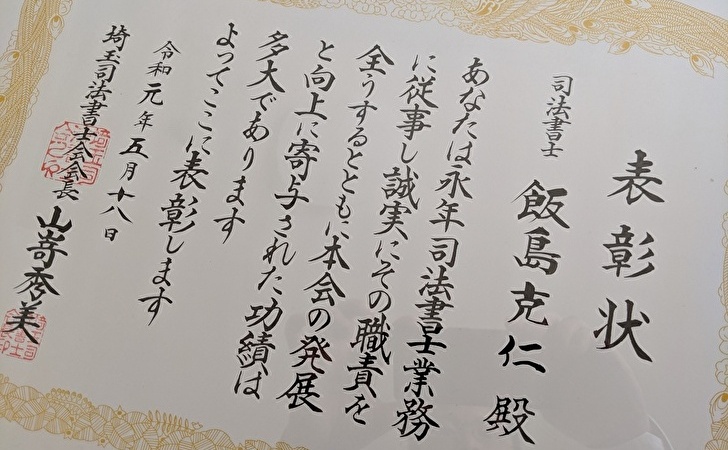 表彰状
司法書士 飯島克仁 殿
あなたは永年司法書士業務
に従事し誠実にその職責を
全うするとともに本会の発展
と向上に寄与された功績は
多大であります
よってここに表彰します
令和元年五月十八日
埼玉司法書士会会長 山嵜秀美